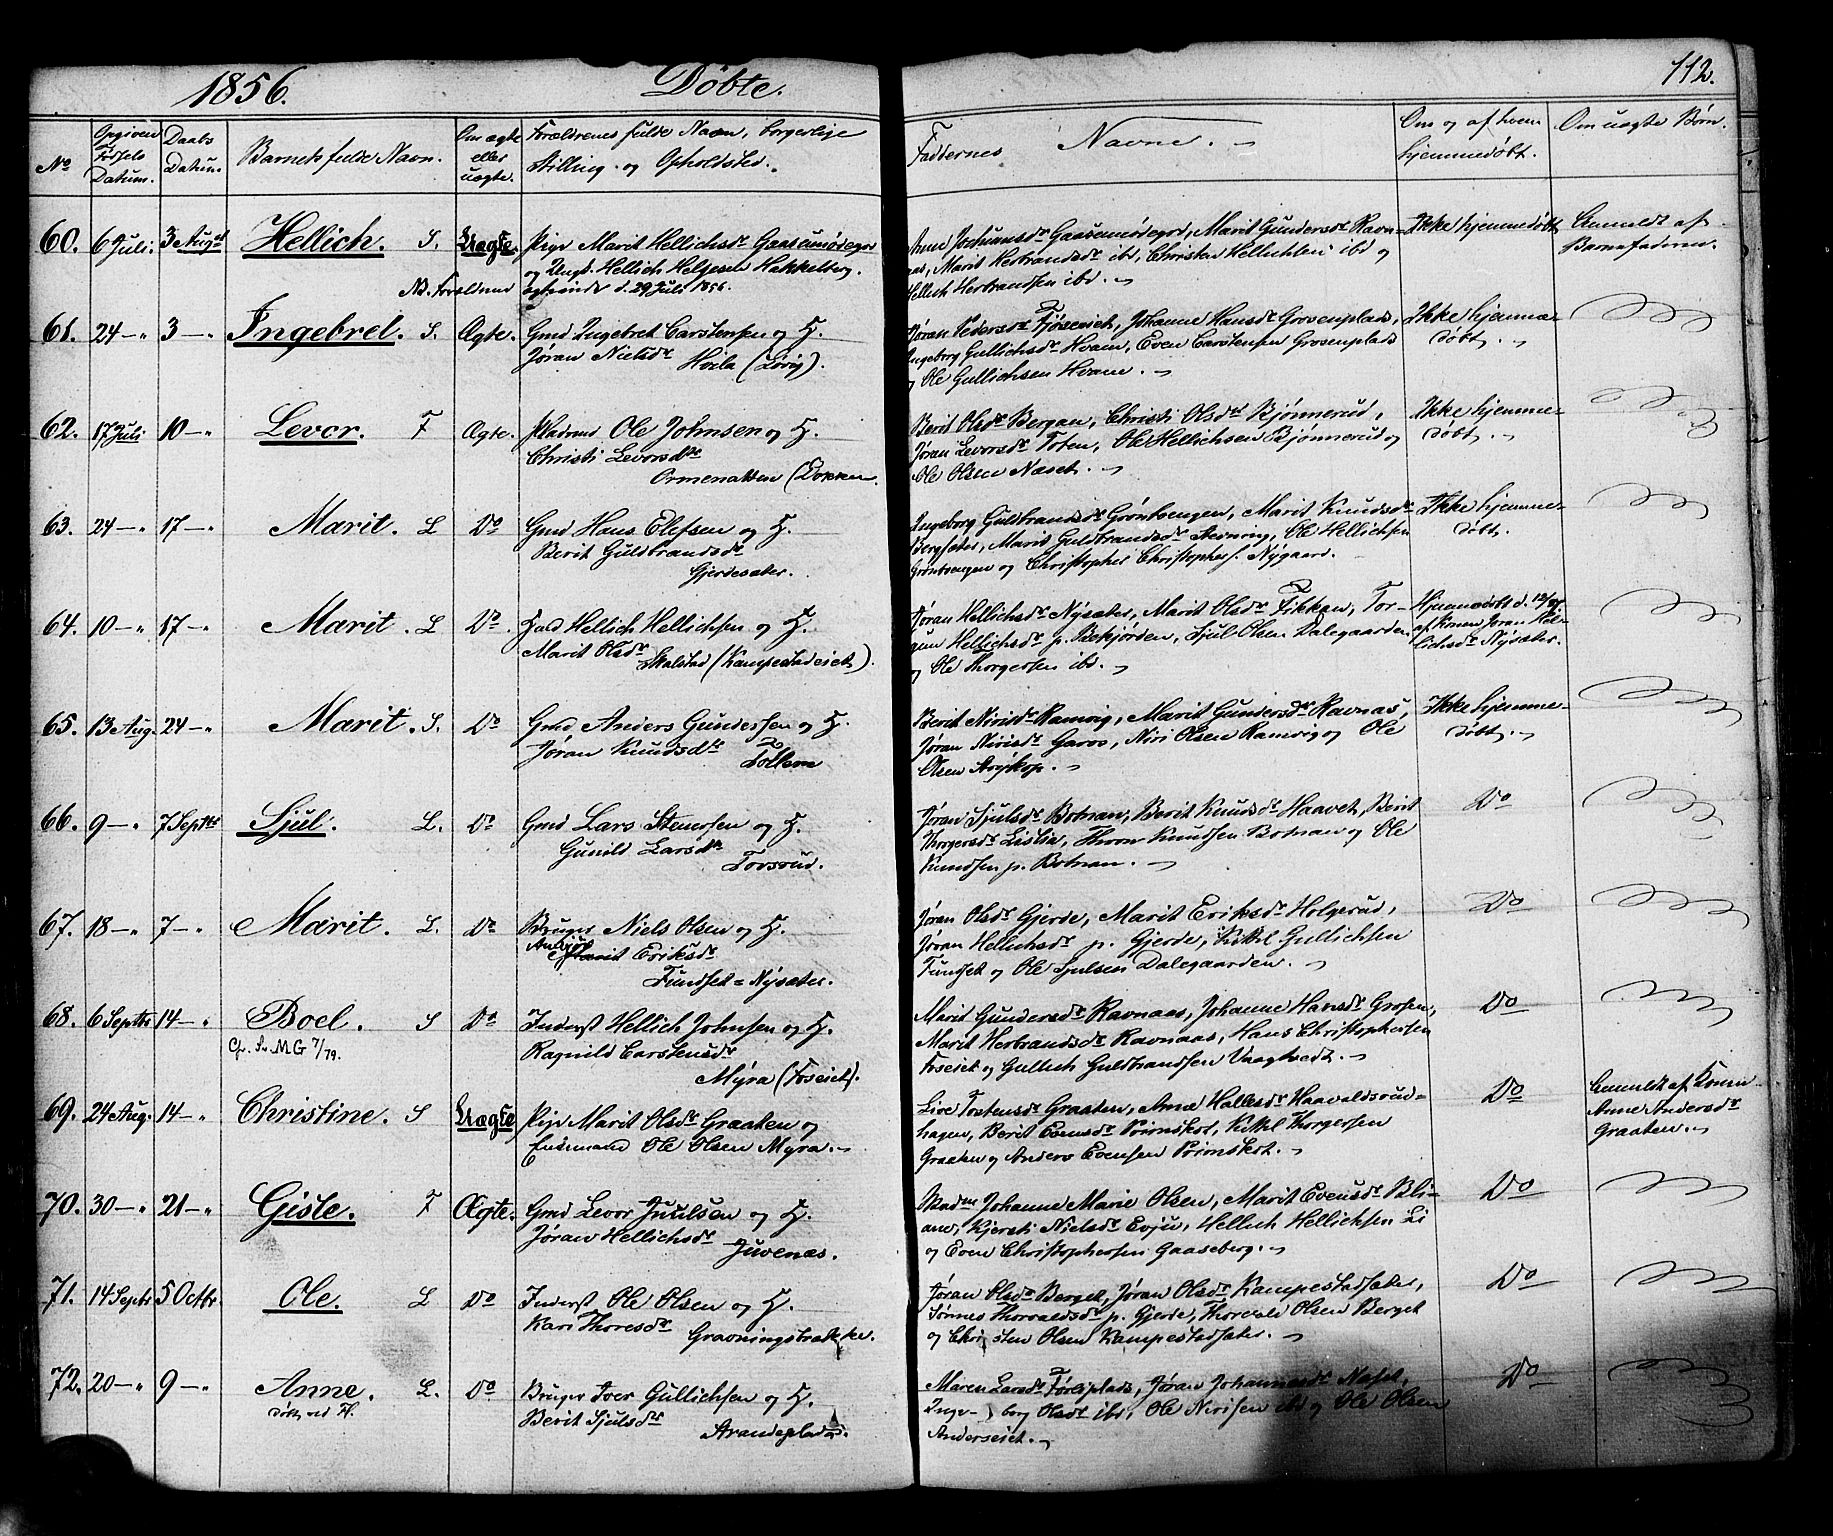 1856. Døbte. 112.
No
Opgiven Fødsels Datum.
Daabs Datum.
Barnets fulde Navn.
Om ægte eller uægte.
Forældrenes fulde Navn, borgerlige Stilling og Opholdsted.
Faddernes Navne.
Om og af hvem hjemmedøbt.
Om uægte Børn.
60. 6 Juli. 3 August Hellich. S. Uægte. Pige Marit Hellichsdr Gaasumødegrd
og Ungk. Hellich Helgesen Hakkelberg.
NB. Forældrene ægteviede d. 29 Juli 1856.
Anne Jochumsdr Gaasumødegrd, Marit Gundersdr Ravn-
aas, Marit Herbrandsdr ibd, Christen Hellichsen ibd og
Hellich Herbrandsen ibd.
Ikke hjemmedøbt
Anmeldt af
Barnefaderen.
61. 24 — " 3 — " Ingebret. S. Ægte. Gmd Ingebret Carstensen og H.
Jøran Nielsdr Hvila (Lørig).
Jøran Pedersdr Fjøseneie, Johanne Hansdr Grosenplads,
Ingeborg Gullichsdr Hvam, Even Carstensen Grosenplads
og Ole Gullichsen Hvam.
Ikke hjemme-
døbt.
62. 17 Juli 10 — " Levor. F Ægte. Pladsmd Ole Johnsen og H.
Christi Levorsdtr
Ormenatten (Dokken
Berit Olsdr Bergan, Christi Olsdr Bjønnerud,
Jøran Levorsdr Toten, Ole Hellichsen Bjønnerud og
Ole Olsen Næset.
Ikke hjemme-
døbt.
63. 24 — " 17 — " Marit. L Do Gmd Hans Elefsen og H.
Berit Guldbrandsdr
Gjerdesæter.
Ingeborg Guldbrandsdr Grøntvengen, Marit Knudsdr
Bergsæter, Marit Guldbrandsdr Stevning, Ole Hellichsen
Grøntvengen og Christopher Christophers. Nygaard.
Ikke hjemme-
døbt.
64. 10 — " 17 — " Marit. L Do Gmd Hellich Hellichsen og H.
Marit Olsdr Skalstad (Kampestadeiet).
Jøran Hellichsdr Nysæter, Marit Olsdr Fikkan, Tor-
gun Hellichsdr p. Bekjorden, Sjul Olsen Dalegaarden
og Ole Thorgersen ibd.
Hjemmedøbt d. 12/8
af Konen Jøran Hel-
lichsdr Nysæter.
65. 13 Aug. 24 — " Marit. S. Do Gmd Anders Gundersen og H.
Jøran Knudsdtr Tollene
Berit Nirisdr Ramvig, Marit Gundersdr Ravnaas,
Jøran Nirisdr Garås, Niri Olsen Ramvig og Ole
Olsen Aryskop.
Ikke hjemme-
døbt.
66. 9 — " 7 Septbr Sjul. L. Do Gmd Lars Stenersen og H.
Gunild Larsdr
Tovsrud.
Jøran Sjulsdr Botnan, Berit Knudsdr Haavet, Berit
Thorgersdr Lislia, Thorn Knudsen Botnan og Ole
Knudsen p. Botnan.
Do
67. 18 — " 7 — " Marit. L. Do Bruger Niels Olsen og H.
Marit Eriksdr
Fundset = Nysæter.
Jøran Olsdr Gjerde, Marit Eriksdr Holgerud,
Jøran Hellichsdr p. Gjerde, Kittil Gullichsen
Fundset og Ole Sjulsen Dalegaarden.
Do
68. 6 Septbr 14 — " Boel. S Do Inderst Hellich Johnsen og H.
Cfr. Sv. MG 7/79. Ragnild Carstensdr
Myra (Foseiet).
Marit Gundersdr Ravnaas, Johanne Hansdr Grosen,
Marit Herbrandsdr Ravnaas, Hans Christophersen
Foseiet og Gullich Guldbrandsen Vaagtvedt.
Do
69. 24 Aug. 14 — " Christine. S Uægte Pige Marit Olsdr Graaten og
Enkemand Ole Olsen Myra.
Live Tostensdr Graaten, Anne Hallesdr Haavaldsrud-
hagen, Berit Evensdr Prinskot, Kittil Thorgersen
Graaten og Anders Evensen Prinskot.
Do
Anmeldt af Konen
Anne Andersdr
Graaten.
70. 30 — " 21 — " Gisle. F Ægte. Gmd Levor Juulsen og H.
Jøran Hellichsdr
Juvenæs.
Madm Johanne Marie Olsen, Marit Evensdr Bli-
ane, Kjersti Nielsdr Evju, Hellich Hellichsen Li
og Even Christophersen Gaaseberg.
Do
71. 14 Septbr 5 Octbr. Ole. L Do Inderst Ole Olsen og H.
Kari Thoresdr
Gravningsbakke.
Jøran Olsdr Berget, Jøran Olsdr Kampestadsæter,
Jønnes Thorvaldsdr p. Gjerde, Thorvald Olsen Berget
og Christen Olsen Kampestadsæter.
Do
72. 20 — " 9 — " Anne. L. Do Bruger Iver Gullichsen og H.
Døbt ved H. Berit Sjulsdtr
Strandeplads.
Maren Larsdr Førlieplads, Jøran Johannesdr Næset,
Ingeborg Olsdr ibd, Ole Nirisen ibd og Ole Olsen
Anderseiet.
Do